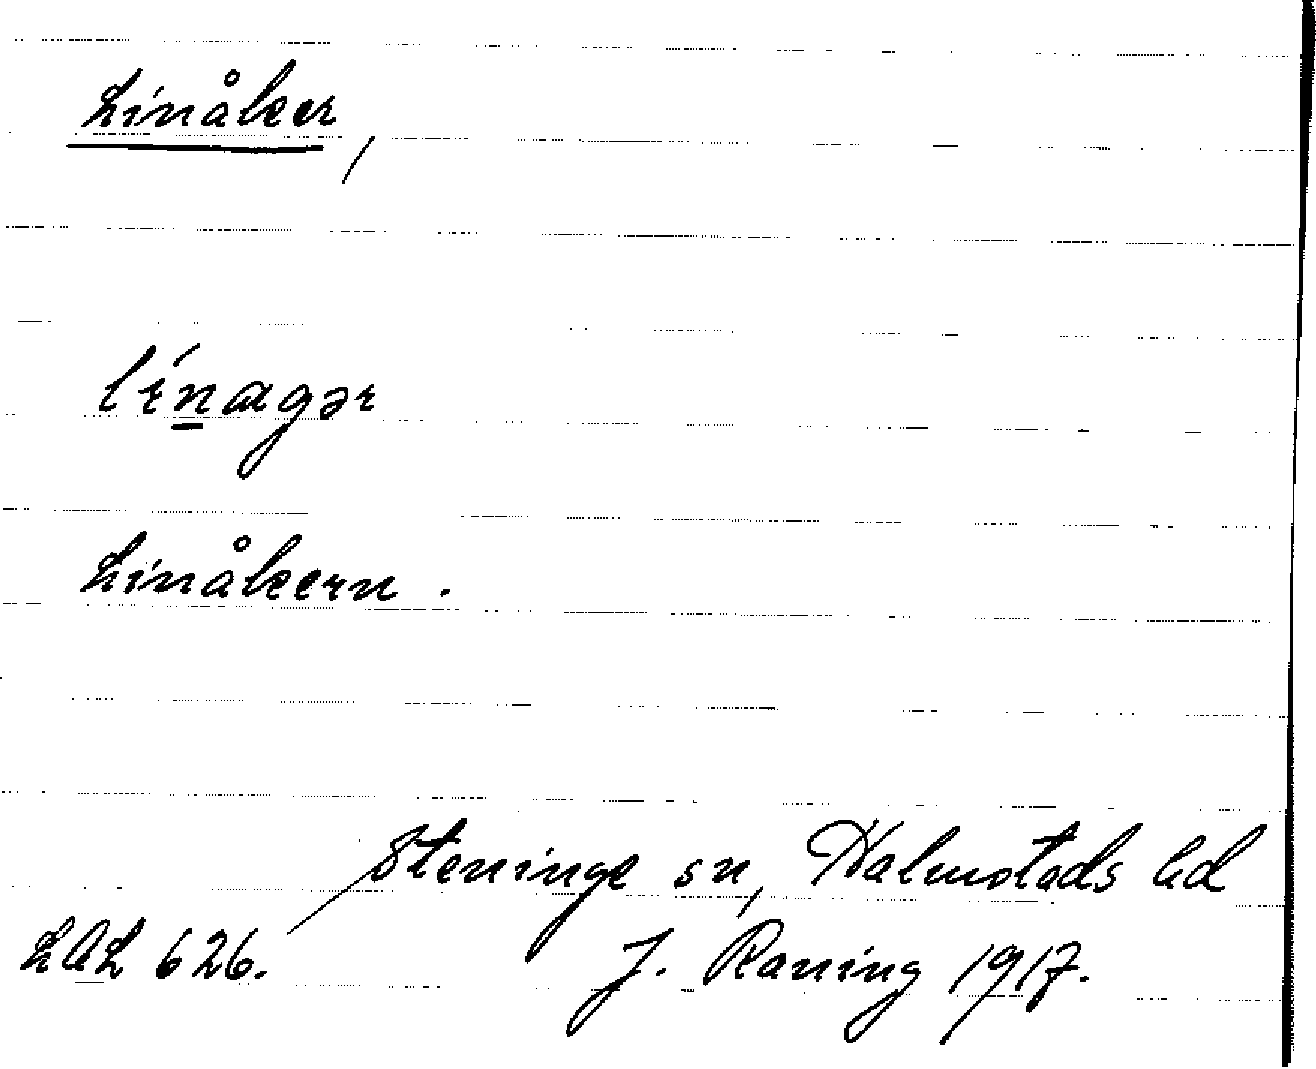 Linåker,
línagər
Linåkern.
Steninge sn, Halmstads hd
LAL 626. J. Raning 1917.